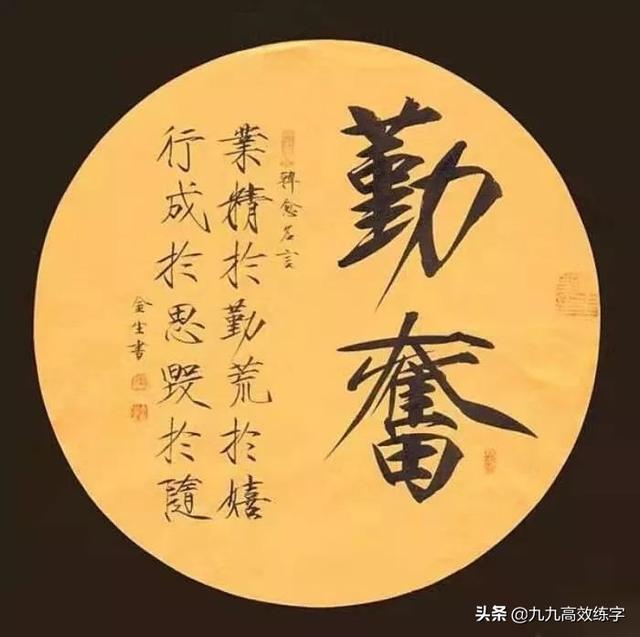 勤奮
韓愈名言
業精於勤荒於嬉
行成於思毀於隨
金生書
头条 @九九高效练字